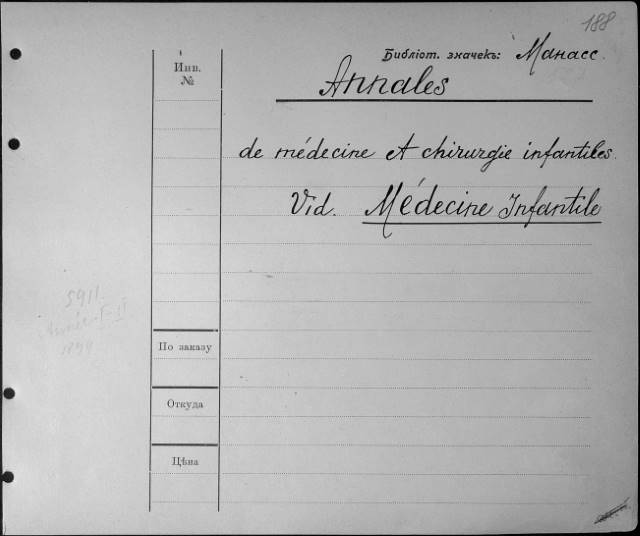 188
Библіот. значекъ: Манасс.
Инв.
№
Annales
de médecine et chirurgie infantiles.
Vid. Médecine Infantile
5911.
Année I-II
1894
По заказу
Откуда
Цѣна